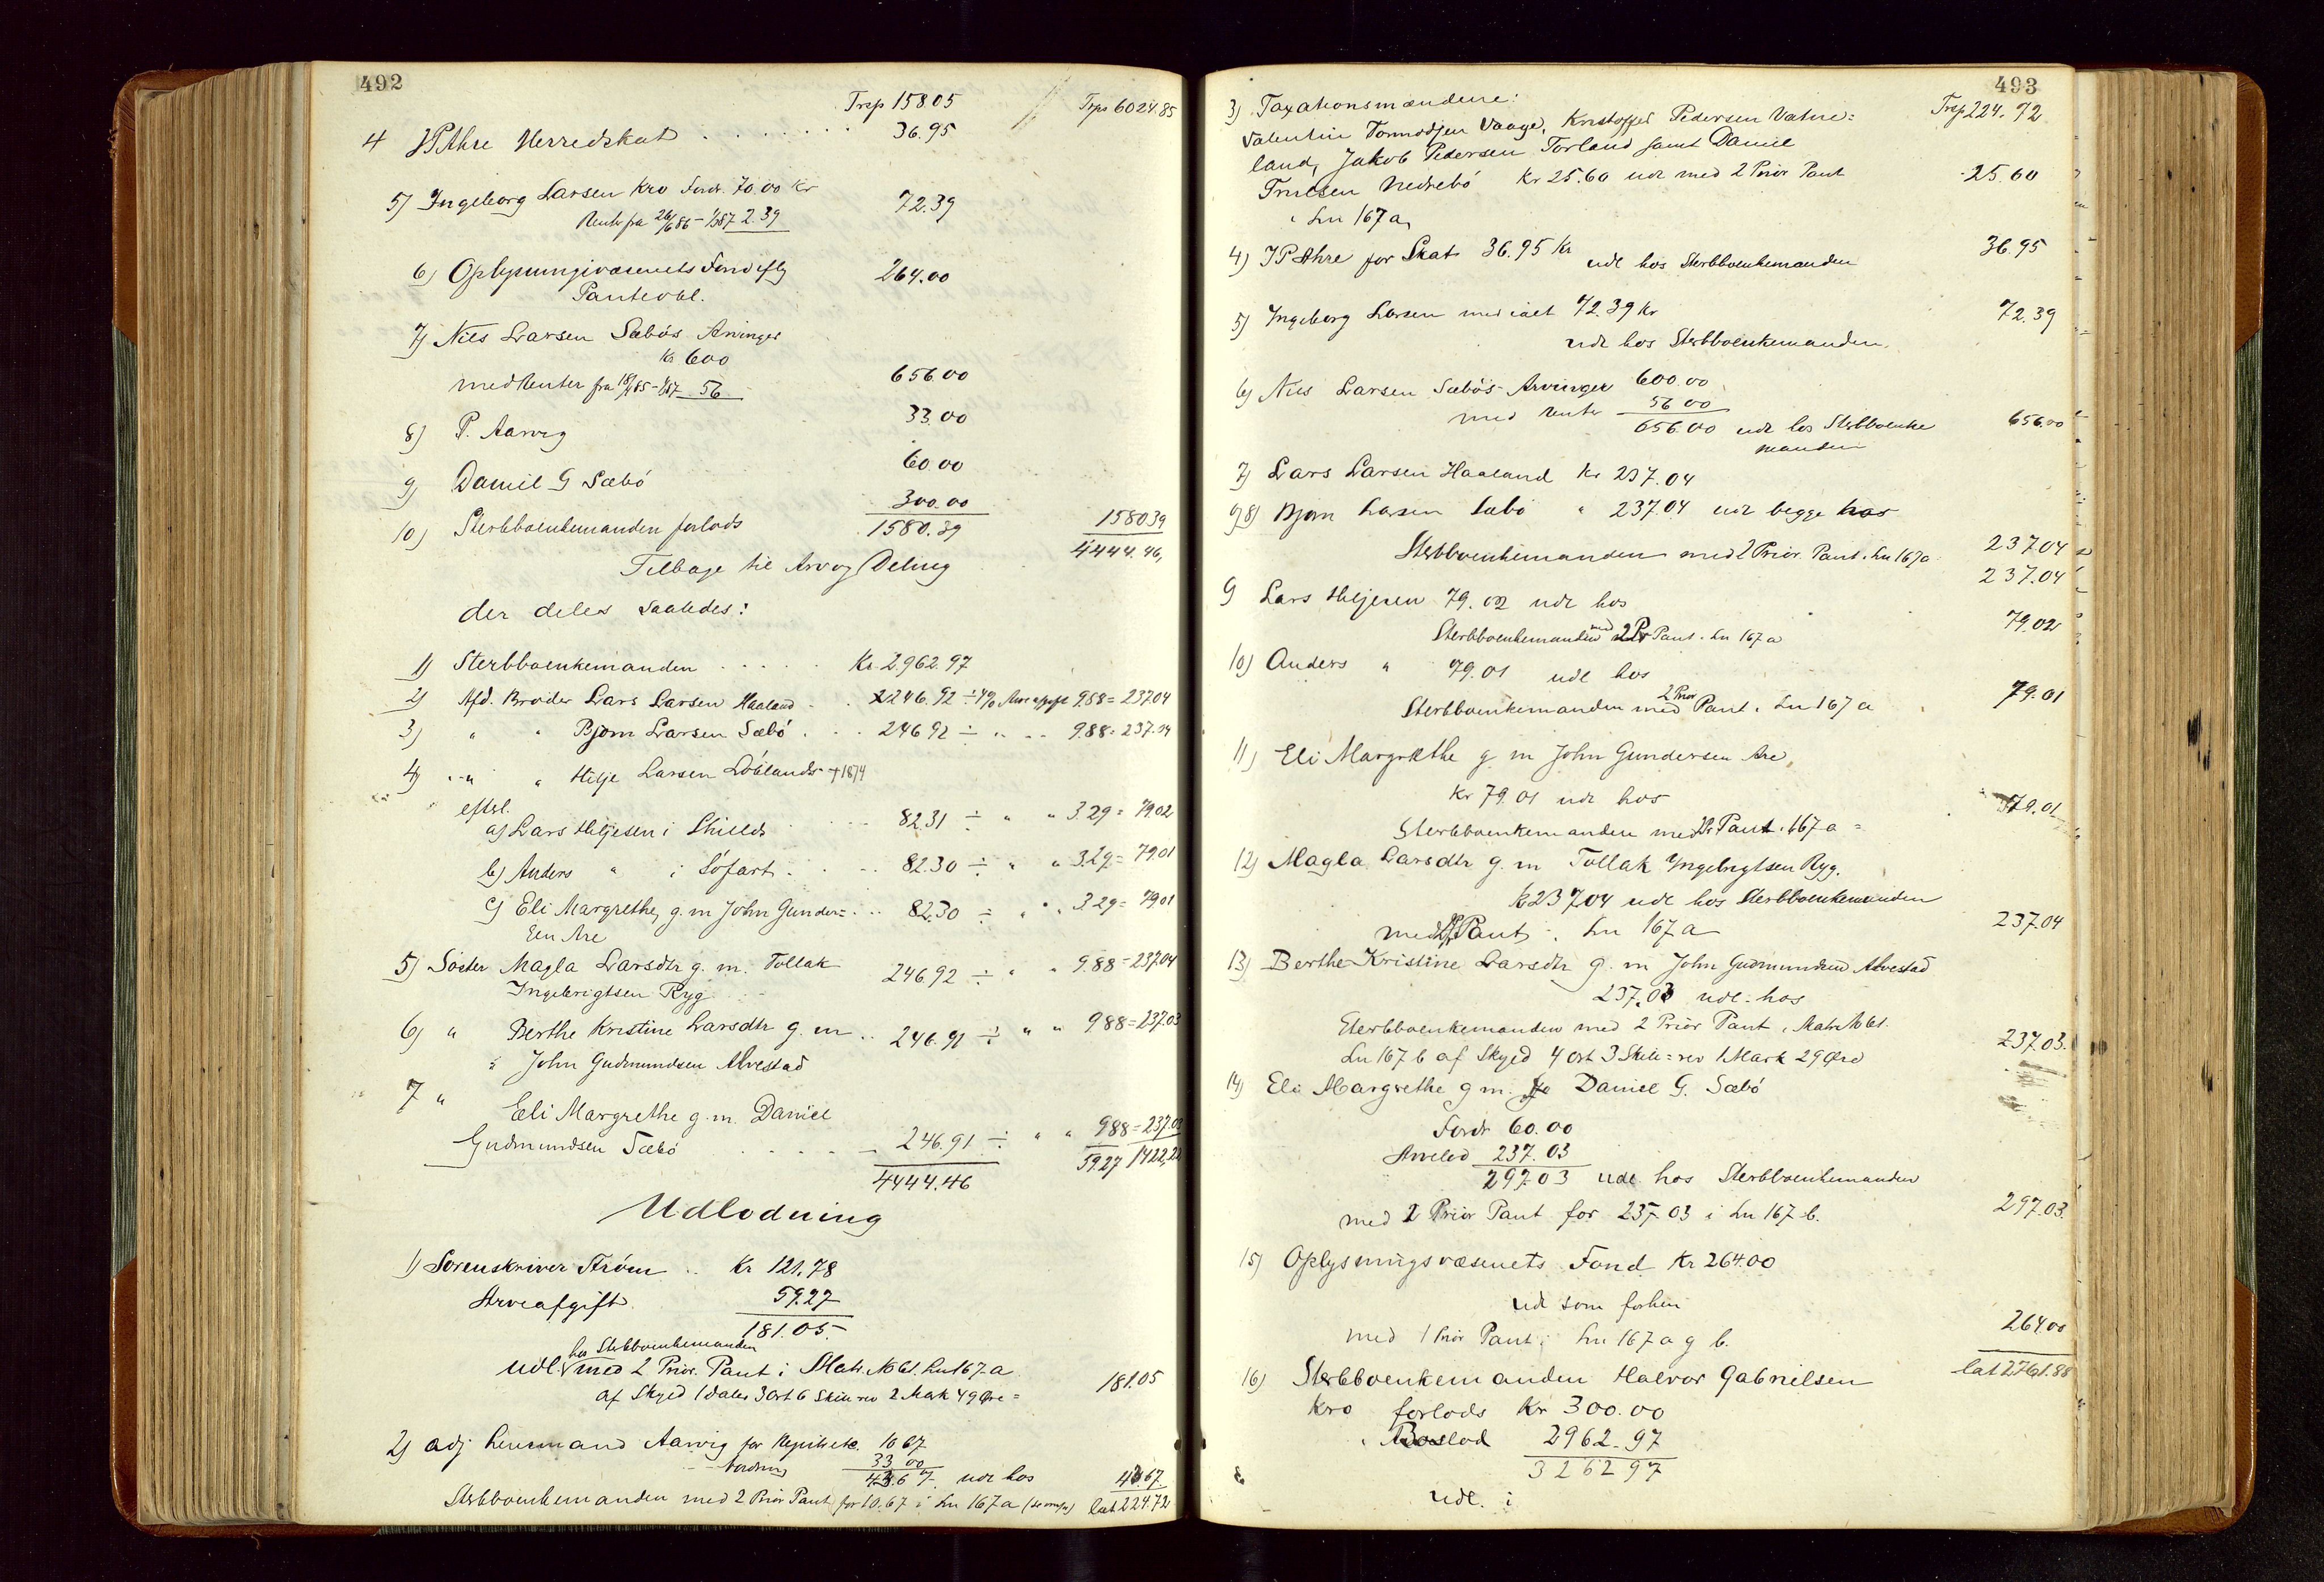 492
Trsp 158.05 Trsp 6024.85
4 JP Ahre Herredskat . . . . . . . 36.95
5) Ingeborg Larsen Kro Fordr. 70.00 Kr
Renter fra 26/6 86 - 1/1 87 2.39 72.39
6) Oplysningsvæsenets Fond eftg 264.00
Panteobl.
7) Nils Larsen Sæbös Arvinger
Kr 600
med Renter fra 18/4 85 - 1/1 87 56 656.00
8) P. Aarvig 33.00
9) Daniel G Sæbö 60.00
10) Sterbboenkemanden forlods 300.00
1580.39 1580 39
Tilbage til Arv og Deling 4444.46,
der deles saaledes:
1) Sterbboenkemanden . . . . . Kr. 2962.97
2) Afd. Broder Lars Larsen Haaland . . 246.92 ÷ 4% Arveafgift 9.88 = 237.04
3) " " Bjørn Larsen Sæbö . . . 246 92 ÷ " " 9.88 = 237.04
4) " " Hilje Larsen Löölands + 1874
efterl.
a) Lars Hiljesen i Skields . . . . 82.31 ÷ " " 3.29 = 79.02
b) Anders " i Söfart . . . . 82.30 ÷ " " 3.29 = 79.01
c) Eli Margrethe, g. m John Gunder= . . . 82.30 ÷ " " 3.29 = 79.01
sen Are
5) Söster Magla Larsdtr g. m. Tollak 246.92 ÷ " " 9.88 = 237.04
Ingebrigtsen Ryg
6) " Berthe Kristine Larsdtr g. m . . 246.91 ÷ " " 9.88 = 237.03
John Gudmundsen Alvestad
7 " Eli Margrethe g. m. Daniel
Gudmundsen Sæbö . . . . . 246.91 ÷ " " 9.88 = 237.03
4444.46 59.27 1422,22
Udlodning
1) Sorenskriver Ström . . Kr 121.78
Arveafgift 59.27
181.05.
hos Sterbboenkemanden
udl. med 2 Prior. Pant i Matr. No 61. Ln 167 a
af Skyld 1 Daler 3 Ort 6 Skill rev 2 Mark 49 Øre = 181.05
2) adj Lensmand Aarvig for Repits etc. 10 67
Fordring 33 00
43.67 udl hos 43.67
Sterbboenkemanden med 2 Prior Pant for 10.67 i Ln 167 a lat 224.72
493
Trsp 224.72
3) Taxationsmændene:
Valentin Tormodsen Vaage, Kristoffer Pedersen Vatne=
land, Jakob Pedersen Torland samt Daniel
Truesen Nedrebö Kr 25.60 udl med 2 Prior Pant 25.60
i Ln 167 a
4) JP Ahre for Skat 36.95 Kr udl hos Sterbboenkemanden 36.95
5) Ingeborg Larsen med ialt 72.39 Kr 72.39
udl hos Sterbboenkemanden.
6) Nils Larsen Sæbös Arvinger 600.00
med Renter 56 00
656.00 udl hos Sterbboenke 656.00
manden
7) Lars Larsen Haaland Kr 237.04
8) Bjørn Larsen Sæbö " 237.04 udl begge hos
Sterbboenkemanden med 2 Prior. Pant i Ln 167 a 237.04
237.04
9 Lars Hiljesen 79.02 udl hos
Sterbboenkemanden med 2 Pr Pant i Ln 167 a 79.02
10) Anders " 79.01 udl hos
Sterbboenkemanden med 2 Prior Pant i Ln 167 a 79.01
11) Eli Margrethe g m John Gundersen Are,
Kr 79.01 udl hos
Sterbboenkemanden med Pr Pant i 167 a = 79.01
12) Magla Larsdtr g. m Tollak Yngebrigtsen Ryg.
Kr 237.04 udl hos Sterbboenkemanden
med Pr Pant i Ln 167 a 237.04
13) Berthe Kristine Larsdtr g. m John Gudmundsen Alvestad
237.03 udl. hos
Sterbboenkemanden med 2 Prior Pant i Matr No 61.
Ln 167 b af Skyld 4 Ort 3 Skill = rev 1 Mark 29 Øre 237.03.
14) Eli Margrethe g m. Daniel G. Sæbö
Fordr 60.00
Arvelod 237.03
297.03 udl. hos Sterbboenkemanden
med 2 Prior Pant for 237.03 i Ln 167 b. 297.03.
15) Oplysningsvæsenets Fond Kr 264.00
udl som forhen
med 1 Prior Pant i Ln 167 a g b. 264.00
lat 2761.88
16) Sterbboenkemanden Halvor Gabrielsen
Kro forlods Kr 300.00
Boslod 2962.97
3262 97
udl. i